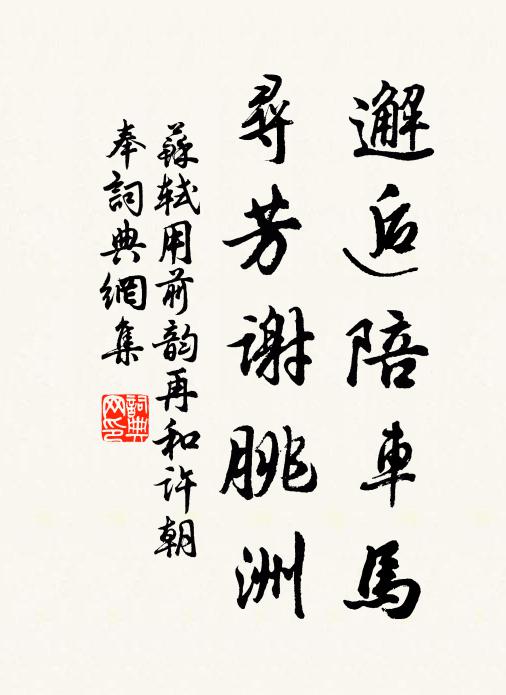 邂逅陪車馬
尋芳謝朓洲
蘇軾用前韵再和许朝
奉詞典網集
詞典
网印